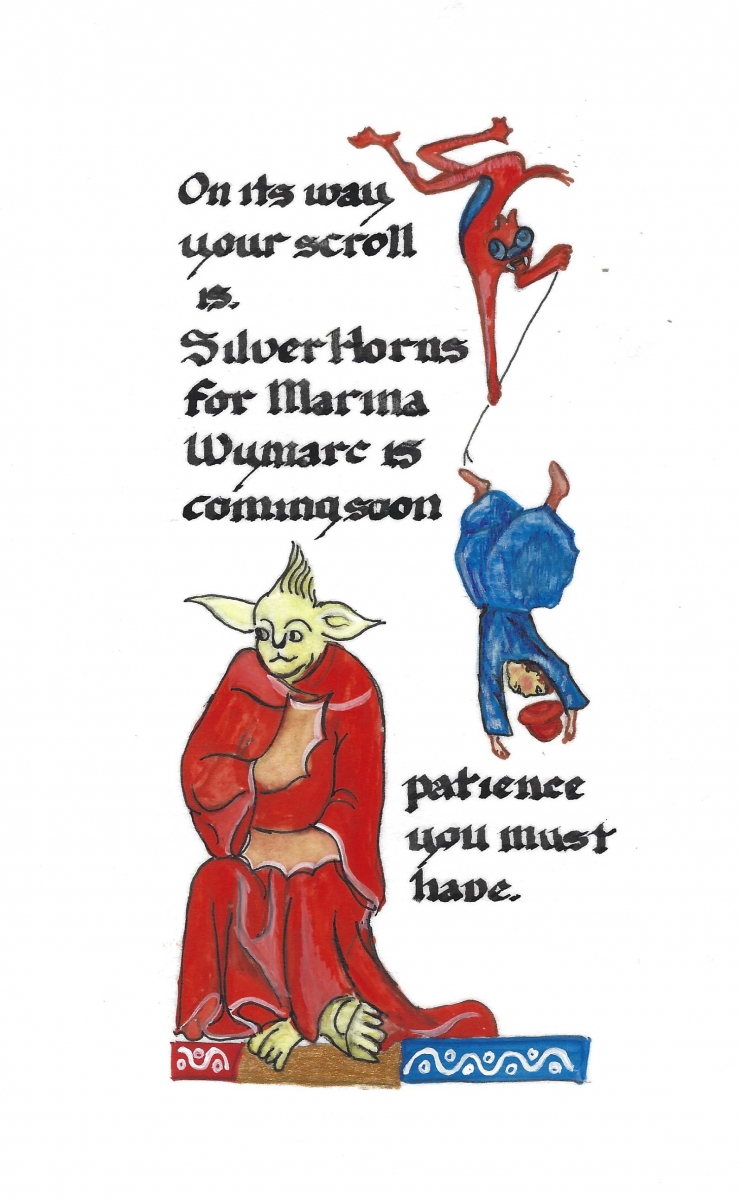 On its way
your scroll
is.
Silver Horns
for Marina
Wymarc is
coming soon
patience
you must
have.